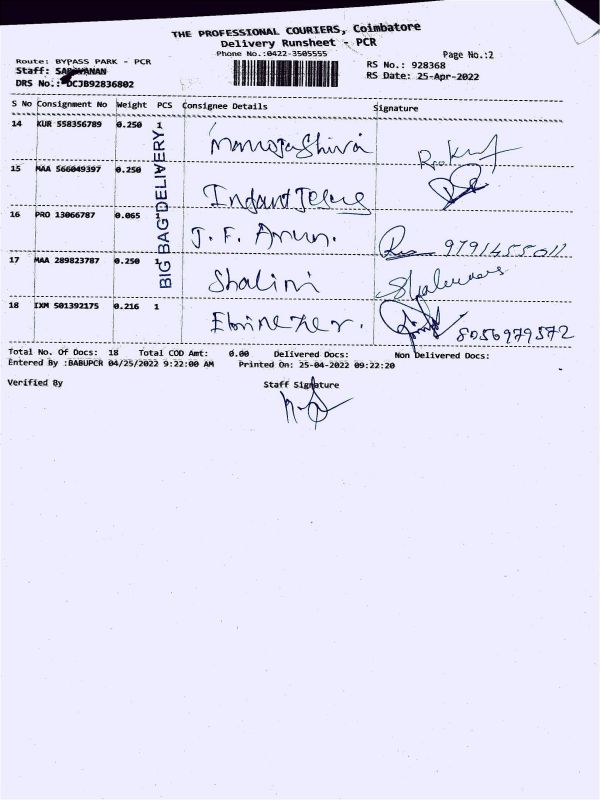 THE PROFESSIONAL COURIERS, Coimbatore
Delivery Runsheet - PCR
Phone No.:0422-3505555
Page No.:2
Route: BYPASS PARK - PCR
RS No.: 928368
Staff: SARAVANAN
RS Date: 25-Apr-2022
DRS No.: DCJB92836802
S No Consignment No Weight PCS Consignee Details Signature
14 KUR 558356789 0.250 1 Manoja Shiva
15 MAA 566049397 0.250 Infant Jesus
16 PRO 13066787 0.065 1 J. F. Arun. 9791455011
17 MAA 289823787 0.250 1 Shalini
18 IXM 501392175 0.216 1 Ebinezer. 8056979572
BIG BAG DELIVERY
Total No. Of Docs: 18 Total COD Amt: 0.00 Delivered Docs: Non Delivered Docs:
Entered By :BABUPCR 04/25/2022 9:22:00 AM Printed On: 25-04-2022 09:22:20
Verified By Staff Signature